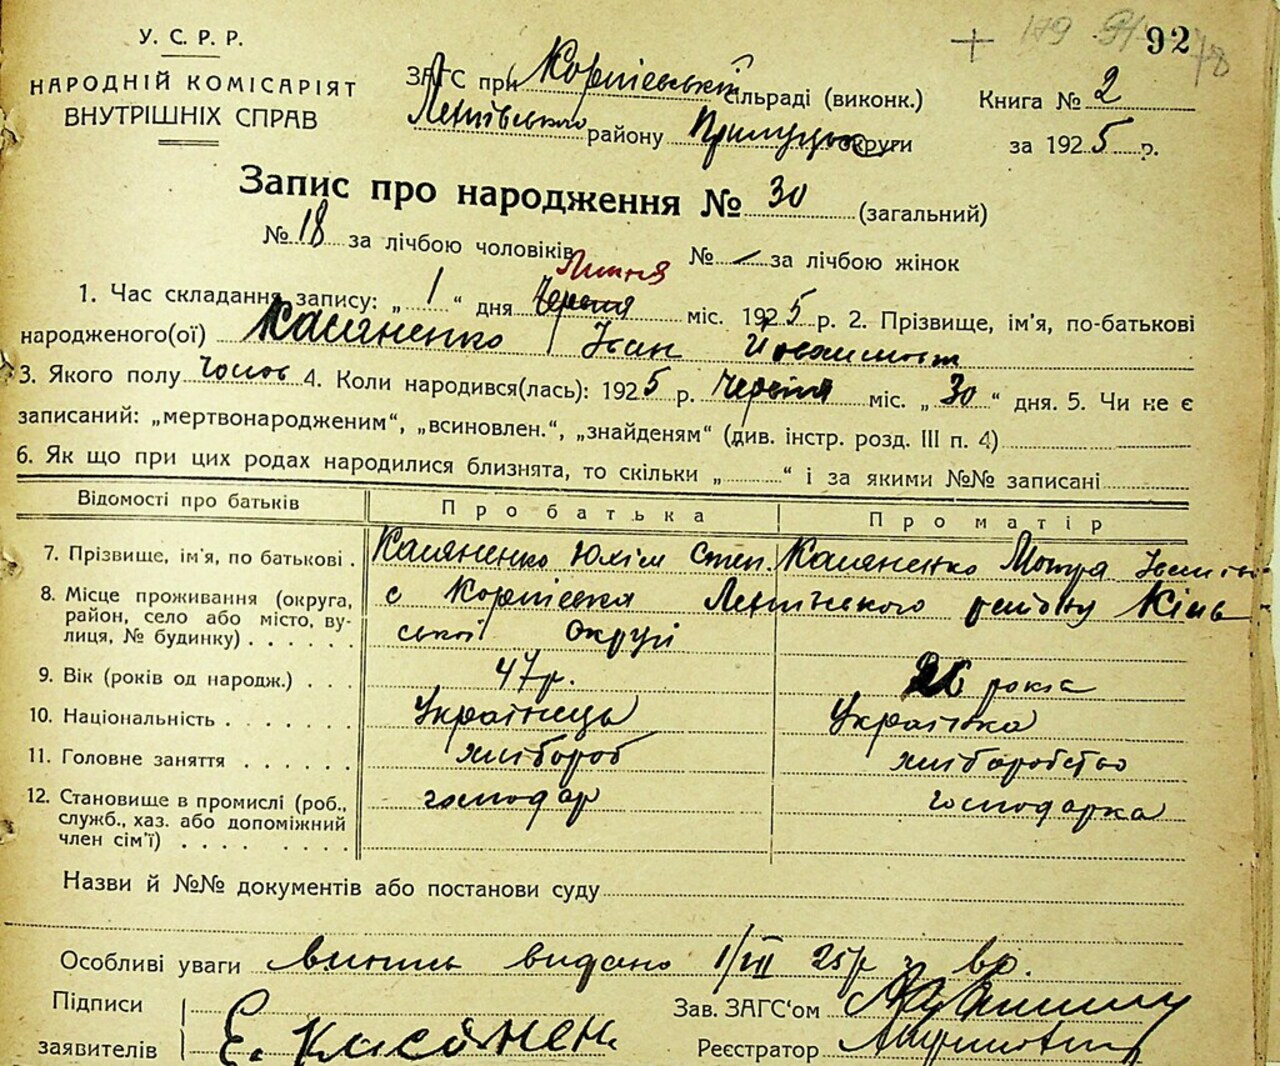 179 91 92
78
У. С. Р. Р.
НАРОДНІЙ КОМІСАРІЯТ
ВНУТРІШНІХ СПРАВ
ЗАГС при сільраді (виконк.)
району Прилуцької округи
Книга № 2
за 1925 р.
Запис про народження № 30 (загальний)
№ 18 за лічбою чоловіків № — за лічбою жінок
Липня
1. Час складання запису: „ 1 “ дня Червня міс. 1925 р. 2. Прізвище, ім’я, по-батькові
народженого(ої) Касяненко Іван
3. Якого полу чолов 4. Коли народився(лась): 1925 р. Червня міс. „ 30 “ дня. 5. Чи не є
записаний: „мертвонародженим“, „всиновлен.“, „знайденям“ (див. інстр. розд. III п. 4)
6. Як що при цих родах народилися близнята, то скільки „ “ і за якими №№ записані
Відомості про батьків Про батька Про матір
7. Прізвище, ім’я, по батькові . Касяненко Юхім Степ. Касяненко Мотря
8. Місце проживання (округа, район, село або місто, вулиця, № будинку) . . . . . . с района
ської Округі
9. Вік (років од народж.) . . . 47р. 26 рокса
10. Національність . . . . . . . Українець Українка
11. Головне заняття . . . . . . хлібороб хліборобство
12. Становище в промислі (роб., служб., хаз. або допоміжний член сім’ї) . . . . . . . господар господарка
Назви й №№ документів або постанови суду
Особливі уваги видано 1/VII 25р
Підписи
заявителів Е. Касянен.
Зав. ЗАГС‘ом
Реєстратор